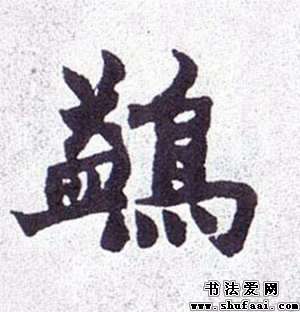 鷁
书法爱网
www.shufaai.com